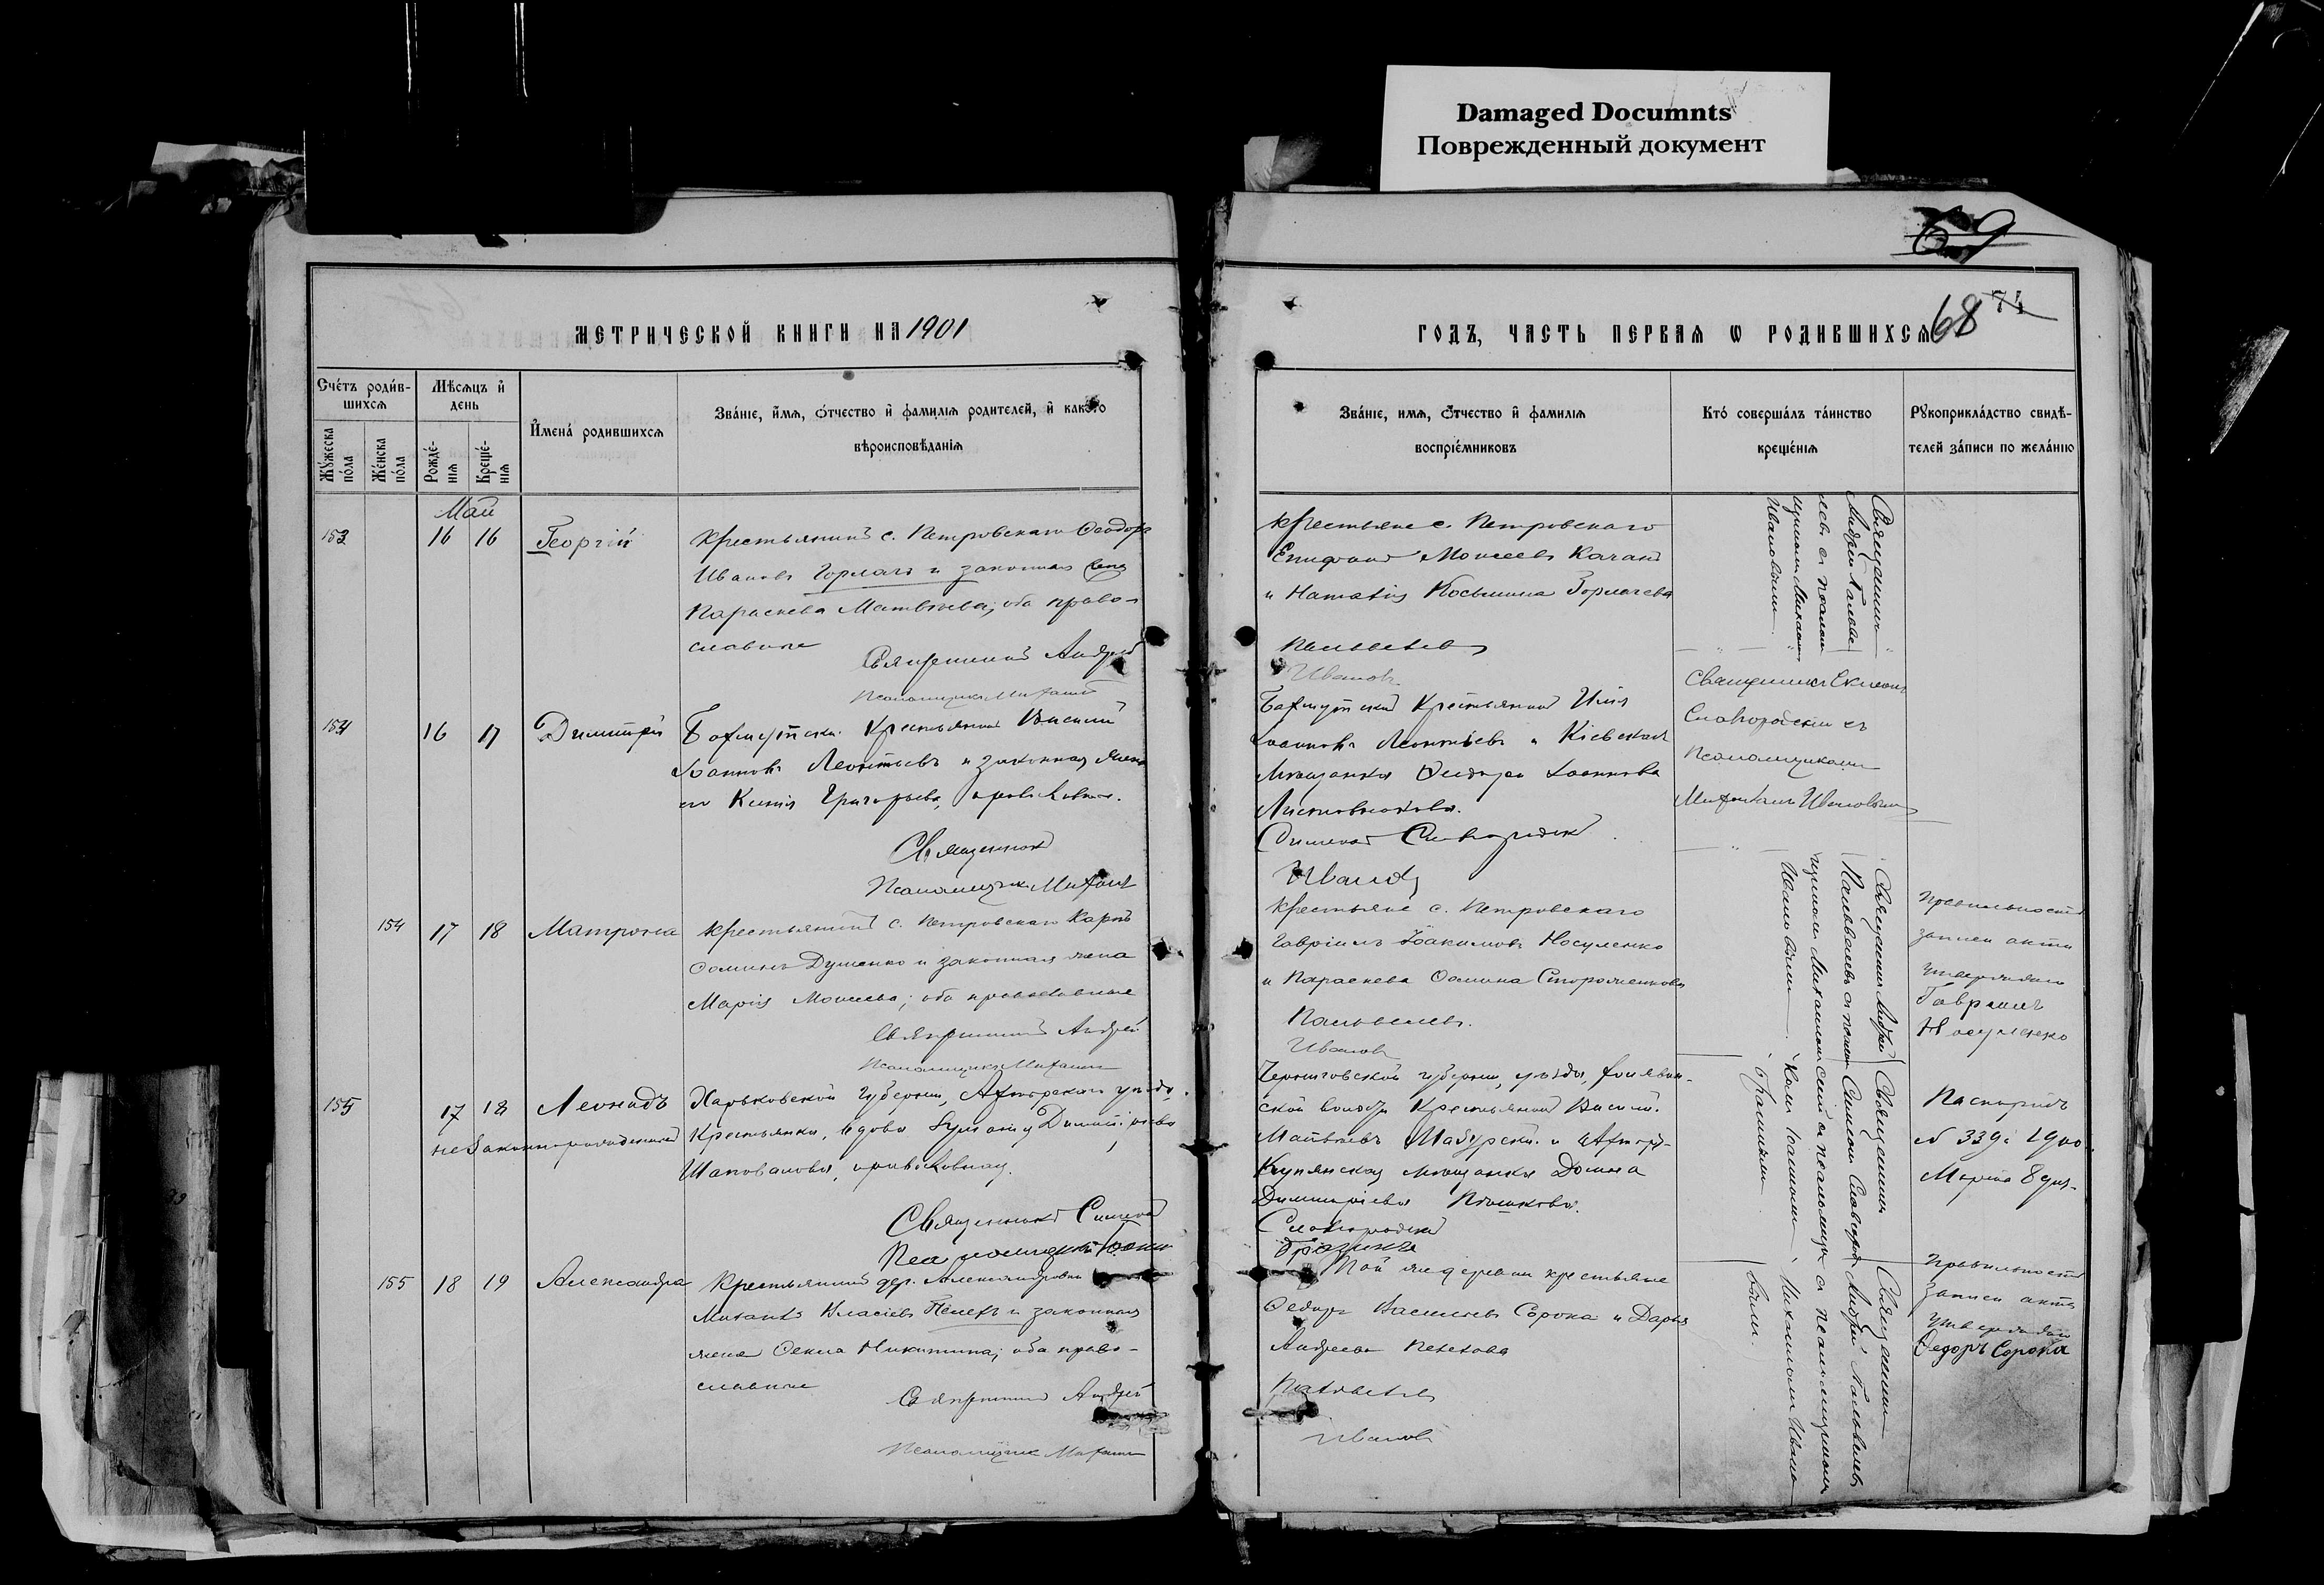 Damaged Documnts
Поврежденный документ
69
68 74
МЕТРИЧЕСКОЙ КНИГИ НА 1901
ГОДЪ, ЧАСТЬ ПЕРВАЯ Ѡ РОДИВШИХСЯ
Счетъ родив-
шихся
Мѣсяцъ и
день
Мужеска
пола
Женска
пола
Рожде-
нія
Креще-
нія
Имена родившихся
Званіе, имя, отчество и фамилія родителей, и какого
вѣроисповѣданія
Званіе, имя, отчество и фамилія
воспріемниковъ
Кто совершалъ таинство
крещенія
Рукоприкладство свидѣ-
телей записи по желанію
Май
153 16 16 Георгій
Крестьянинъ с. Петровскаго Ѳеодоръ
Ивановъ Горлачъ и законная жена
Параскева Матвѣева; оба право-
славные
Священникъ Андрей
Псаломщикъ Михаилъ
Крестьяне с. Петровскаго
Епифанъ Моисеевъ Качанъ
и Наталія Косьмина Горлачева
Пальвелевъ
Ивановъ
Священникъ
Андрей Пальве-
левъ съ псалом-
щикомъ Михаиломъ
Ивановымъ
154 16 17 Димитрій
Бахмутскій Крестьянинъ Василій
Іоанновъ Леонтьевъ и законная жена
его Ксенія Григорьева, православные.
Священникъ
Псаломщикъ Михаилъ
Бахмутскій Крестьянинъ Илія
Іоанновъ Леонтьевъ и Кіевская
Мѣщанка Ѳеодора Іоаннова
Симеонъ Славгородскій
Ивановъ
Священникъ Симеонъ
Славгородскій съ
Псаломщикомъ
Михаиломъ Ивановымъ
154 17 18 Матрона
Крестьянинъ с. Петровскаго Карпъ
Ѳоминъ Душенко и законная жена
Марія Моисеева; оба православные
Священникъ Андрей
Псаломщикъ Михаилъ
Крестьяне с. Петровскаго
Гавріилъ Іоакимовъ Носуленко
и Параскева Ѳомина Стороженкова
Пальвелевъ.
Ивановъ
Священникъ Андрей
Пальвелевъ съ псалом-
щикомъ Михаиломъ
Ивановымъ
Правильность
записи акта
утверждаю
Гавриилъ
Носуленко
155 17 18 Леонидъ
незаконнорожденный
Харьковской Губерніи, Ахтырскаго уѣзда,
Крестьянка, вдова Димитріева
Шаповалова, православная.
Священникъ Симеонъ
Псаломщикъ
Черниговской губерніи, уѣзда,
ской волости Крестьянинъ Василій
Купянская мѣщанка Домна
Димитріева
Славгородскій
Священникъ
Симеонъ Славгород-
скій съ псаломщи-
комъ Іоанномъ
Паспортъ
№ 339 1900
Марта 8 дня
155 18 19 Александра
Крестьянинъ дер. Александровки
Михаилъ Власіевъ Пелехъ и законная
жена Ѳекла Никитина; оба право-
славные
Священникъ Андрей
Псаломщикъ Михаилъ
Той же деревни крестьяне
Ѳедоръ Васильевъ Сорока и Дарья
Андреева Пелехова
Пальвелевъ
Ивановъ
Священникъ
Андрей Пальвелевъ
съ псаломщикомъ
Михаиломъ Ивано-
вымъ.
Правильность
записи акта
утверждаю
Ѳедоръ Сорока